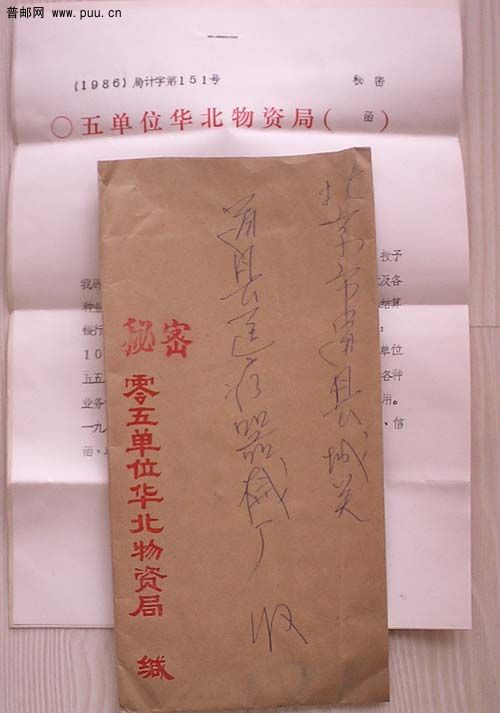 普邮网 www.puu.cn
(1986)局计字第151号 秘密
〇五单位华北物资局(函)
授予
及各
种业 结算
银行
10 单位
五五 各种
业务 用。
一九 、信
函、
北京市通县城关
通县医疗器械厂 收
秘密
零五单位华北物资局 缄